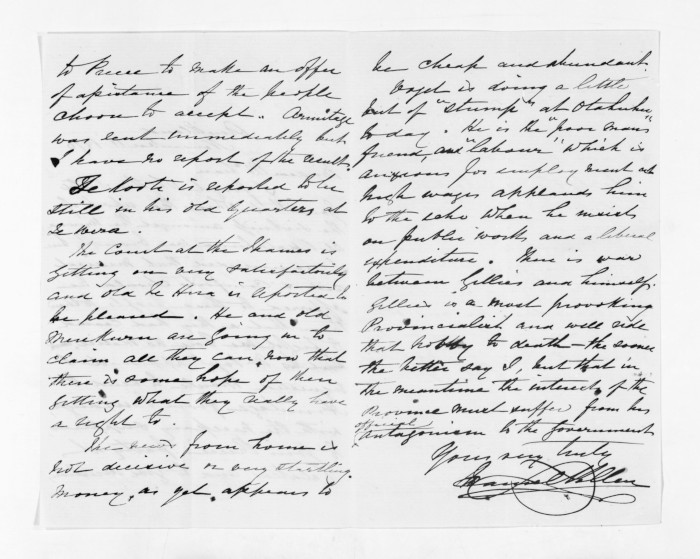 to Puece to make an offer
of assistance if the people
choose to accept. Armitage
was sent immediately but
I have no report of the results
Te Kooti is reported to be
still in his old quarters at
Te Wera.
The Court at the Thames is
getting on very satisfactorily
and old Te Hira is reported to
be pleased. He and old
Mere Kuru are going in to
claim all they can, now that
there is some hope of their
getting what they really have
a right to.
The news from home is
not decisive or very startling
money, as yet, appears to
be cheap and abundant.
Vogel is doing a little
bit of "stump" at Otahuhu
to day. He is the "poor mans
friend, and "labour" which is
anxious for employment at
high wages applauds him
to the echo when he insists
on public works and a liberal
expenditure. There is war
between Gillies and himself.
Gillies is a most provoking
Provincialist and will ride
that hobby to death – the sooner
the better say I, but that in
the meantime the interests of the
Province must suffer from his
official
antagonism to the Government
Yours very truly